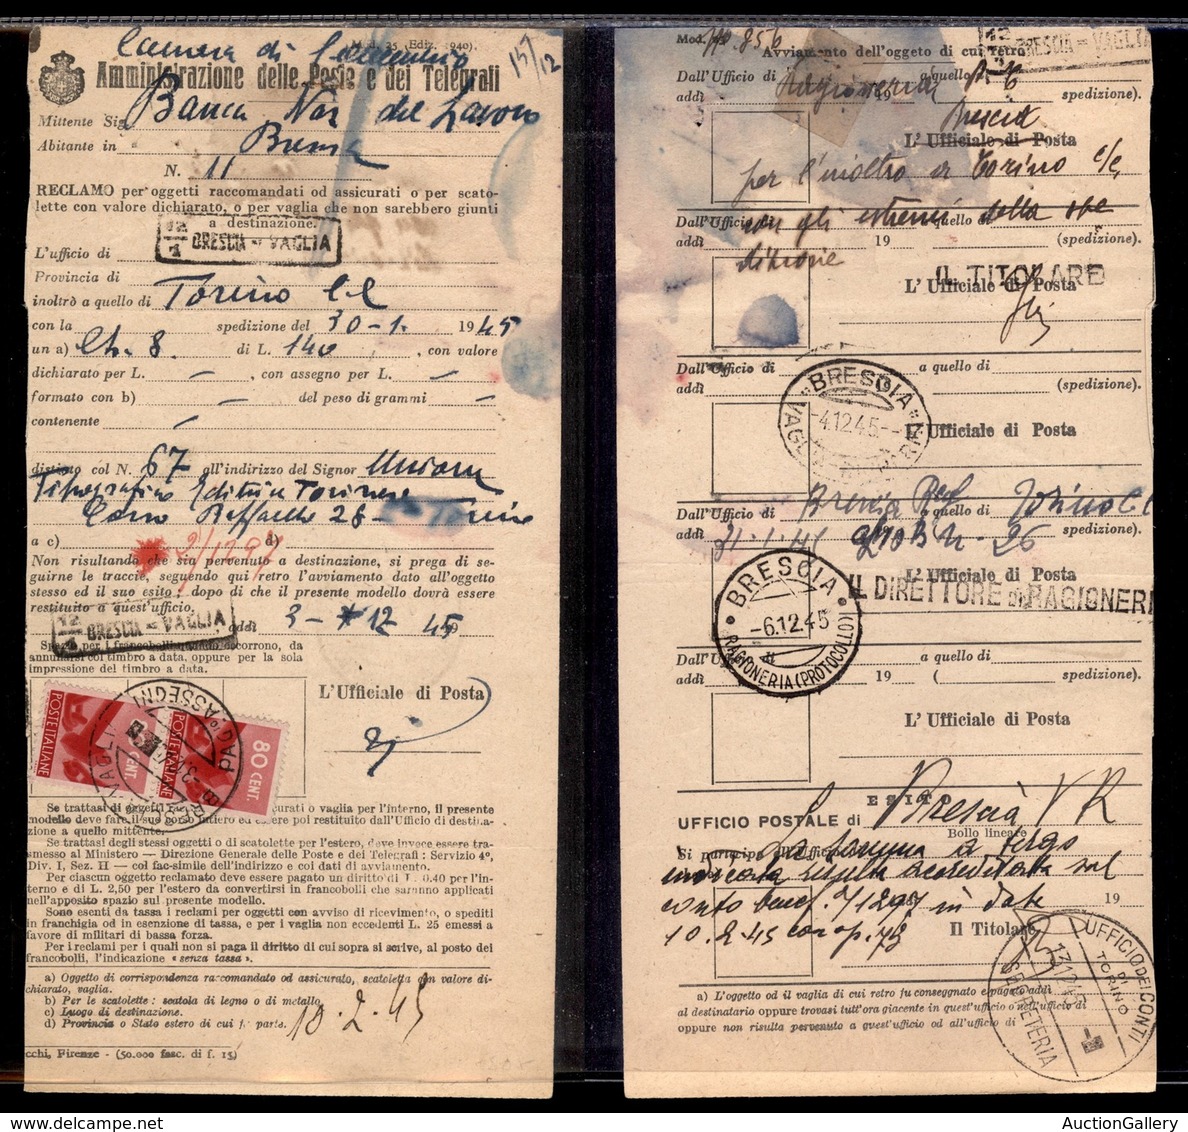 Camera di Commercio
Mod. 25 (Ediz. 1940).
15/12
Amministrazione delle Poste e dei Telegrafi
Mittente Sig. Banca Naz del Lavoro
Abitante in Brescia
N. 11
RECLAMO per oggetti raccomandati od assicurati o per scato-
lette con valore dichiarato, o per vaglia che non sarebbero giunti
a destinazione.
BRESCIA - VAGLIA
L'ufficio di
Provincia di
inoltrò a quello di Torino CC
con la spedizione del 30-1. 1945
un a) Ch. 8 di L. 140, con valore
dichiarato per L. – , con assegno per L. –
formato con b) – del peso di grammi –
contenente –
distinto col N. 67 all'indirizzo del Signor Unione
Tipografico Editrice Torinese
Corso Raffaello 28 - Torino
a c) d)
2/1297
Non risultando che sia pervenuto a destinazione, si prega di se-
guirne le traccie, segnando qui retro l'avviamento dato all'oggetto
stesso ed il suo esito: dopo di che il presente modello dovrà essere
restituito a quest'ufficio.
BRESCIA - VAGLIA
, addì 3 - 12 1945
Spazio per i francobolli quando occorrono, da
annullarsi col timbro a data, oppure per la sola
impressione del timbro a data.
L'Ufficiale di Posta
POSTE ITALIANE
80 CENT.
POSTE ITALIANE
CENT.
Se trattasi di oggetti assicurati o vaglia per l'interno, il presente
modello deve fare il suo corso intiero ed essere poi restituito dall'Ufficio di destina-
zione a quello mittente.
Se trattasi degli stessi oggetti o di scatolette per l'estero, deve invece essere tra-
smesso al Ministero — Direzione Generale delle Poste e dei Telegrafi: Servizio 4°,
Div. I, Sez. II — col fac-simile dell'indirizzo e coi dati di avviamento.
Per ciascun oggetto reclamato deve essere pagato un diritto di L. 0,40 per l'in-
terno e di L. 2,50 per l'estero da convertirsi in francobolli che saranno applicati
nell'apposito spazio sul presente modello.
Sono esenti da tassa i reclami per oggetti con avviso di ricevimento, o spediti
in franchigia od in esenzione di tassa, e per i vaglia non eccedenti L. 25 emessi a
favore di militari di bassa forza.
Per i reclami per i quali non si paga il diritto di cui sopra si scrive, al posto dei
francobolli, l'indicazione « senza tassa ».
a) Oggetto di corrispondenza raccomandato od assicurato, scatoletta con valore di-
chiarato, vaglia.
b) Per le scatolette: scatola di legno o di metallo.
c) Luogo di destinazione.
d) Provincia o Stato estero di cui fa parte.
10.2.45
cchi, Firenze - (50.000 fasc. di f. 15)
Mod.
856
BRESCIA - VAGLIA
Avviamento dell'oggetto di cui retro
Dall'Ufficio di Ragioneria a quello di
addì 19 spedizione).
Brescia
L'Ufficiale di Posta
per l'inoltro a Torino c/c
Dall'Ufficio di con gli estremi a quello di della spe
addì 19 (spedizione).
dizione
IL TITOLARE
L'Ufficiale di Posta
Dall'Ufficio di a quello di
addì (spedizione).
BRESCIA
-4.12.45.-
L'Ufficiale di Posta
Dall'Ufficio di Brescia a quello di Torino CC
addì 31-1-45 26 spedizione).
L'Ufficiale di Posta
IL DIRETTORE di RAGIONERI
BRESCIA
-6.12.45
RAGIONERIA (PROTOCOLLO)
Dall'Ufficio di a quello di
addì 19 ( spedizione).
L'Ufficiale di Posta
ESITO
UFFICIO POSTALE di Brescia VR
Bollo lineare
Si partecipa all'Ufficio
La somma a tergo
indicata risulta accreditata sul
conto benef. 2/1297 in date 19
10.2.45 con op. 73
Il Titolare
UFFICIO DEI CONTI
DI TORINO
SEGRETERIA
a) L'oggetto od il vaglia di cui retro fu consegnato e pagato addì
al destinatario oppure trovasi tutt'ora giacente in quest'ufficio o nell'ufficio di
oppure non risulta pervenuto a quest'ufficio od all'ufficio di
AuctionGallery